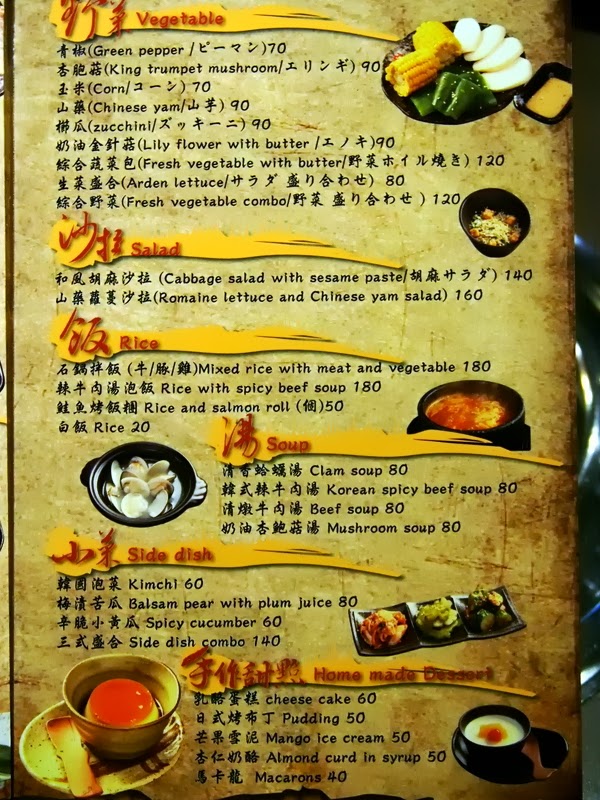 野菜 Vegetable
青椒(Green pepper /ピーマン)70
杏胞菇(King trumpet mushroom/エリンギ) 90
玉米(Corn/コーン) 70
山藥(Chinese yam/山芋) 90
櫛瓜(zucchini/ズッキーニ) 90
奶油金針菇(Lily flower with butter /エノキ)90
綜合蔬菜包(Fresh vegetable with butter/野菜ホイル焼き) 120
生菜盛合(Arden lettuce/サラダ 盛り合わせ) 80
綜合野菜(Fresh vegetable combo/野菜 盛り合わせ ) 120
沙拉 Salad
和風胡麻沙拉 (Cabbage salad with sesame paste/胡麻サラダ) 140
山藥蘿蔓沙拉(Romaine lettuce and Chinese yam salad) 160
飯 Rice
石鍋拌飯 (牛/豚/雞)Mixed rice with meat and vegetable 180
辣牛肉湯泡飯 Rice with spicy beef soup 180
鮭魚烤飯糰 Rice and salmon roll (個)50
白飯 Rice 20
湯 Soup
清香蛤蠣湯 Clam soup 80
韓式辣牛肉湯 Korean spicy beef soup 80
清燉牛肉湯 Beef soup 80
奶油杏鮑菇湯 Mushroom soup 80
小菜 Side dish
韓國泡菜 Kimchi 60
梅漬苦瓜 Balsam pear with plum juice 80
辛脆小黃瓜 Spicy cucumber 60
三式盛合 Side dish combo 140
手作甜點 Home made Dessert
乳酪蛋糕 cheese cake 60
日式烤布丁 Pudding 50
芒果雪泥 Mango ice cream 50
杏仁奶酪 Almond curd in syrup 50
馬卡龍 Macarons 40